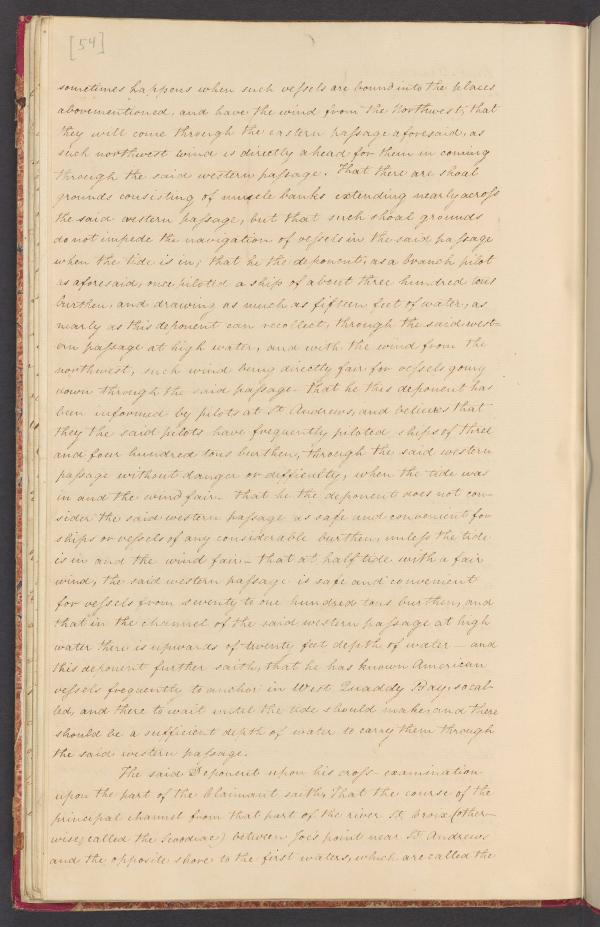 [54]
sometimes happens when such vessels are bound into the places
abovementioned, and have the wind from the Northwest, that
they will come through the eastern passage aforesaid, as
such northwest wind is directly ahead for them in coming
through the said western passage. That there are shoal
grounds consisting of muscle banks extending nearly across
the said western passage, but that such shoal grounds
do not impede the navigation of vessels in the said passage
when the tide is in; that he the deponent, as a branch pilot
as aforesaid, once piloted a ship of about three hundred tons
burthen, and drawing as much as fifteen feet of water, as
nearly as this deponent can recollect, through the said west-
ern passage at high water, and with the wind from the
northwest, such wind being directly fair for vessels going
down through the said passage - that he this deponent has
been informed by pilots at St Andrews, and believes that
they the said pilots have frequently piloted ships of three
and four hundred tons burthen, through the said western
passage without danger or difficulty, when the tide was
in and the wind fair - that he the deponent does not con-
sider the said western passage as safe and convenient for
ships or vessels of any considerable burthen, unless the tide
is in and the wind fair - that at half tide with a fair
wind, the said western passage is safe and convenient
for vessels from seventy to one hundred tons burthen, and
that in the channel of the said western passage at high
water there is upwards of twenty feet depth of water - and
this deponent further saith, that he has known American
vessels frequently to anchor in West Quaddy Bay, so cal-
led, and there to wait until the tide should make, and there
should be a sufficient depth of water to carry them through
the said western passage.
The said Deponent upon his cross-examination
upon the part of the Claimant saith, That the course of the
principal channel from that part of the river St. Croix (other-
wise called the Scoodiac) between Joe's point near St. Andrews
and the opposite shore to the first waters, which are called the